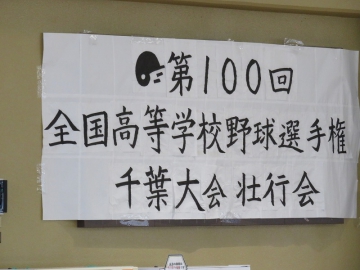 第100回
全国高等学校野球選手権
千葉大会 壮行会